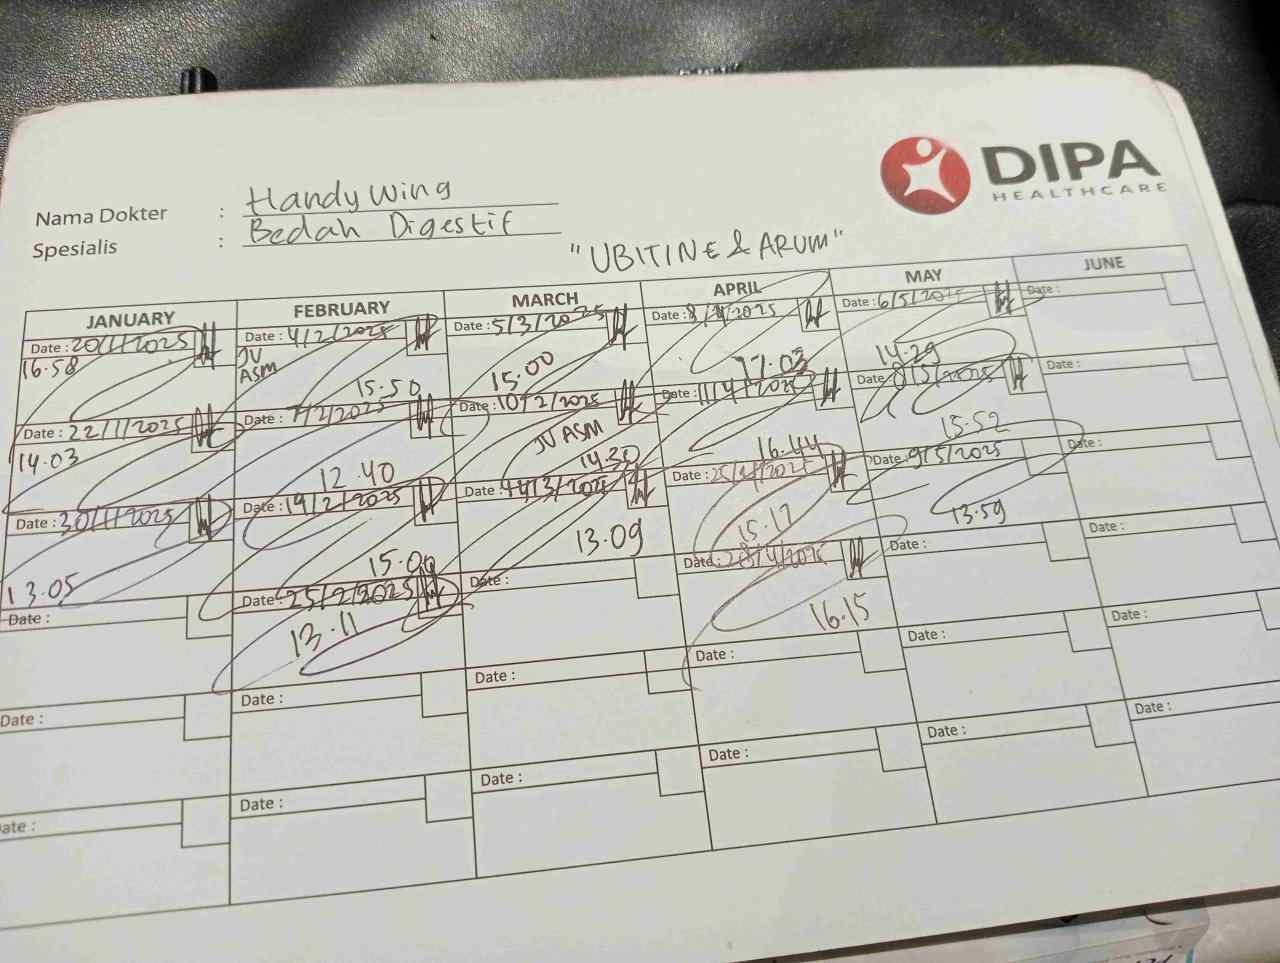 DIPA
HEALTHCARE
Nama Dokter : Handy Wing
Spesialis : Bedah Digestif
"UBITINE & ARUM"
JANUARY FEBRUARY MARCH APRIL MAY JUNE
Date : 20/1/2025 Date : 4/2/2025 Date : 5/3/2025 Date : 8/4/2025 Date : 6/5/2025 Date :
16.58 JV ASM 15.50 15.00 17.03 14.29
Date : 22/1/2025 Date : 7/2/2025 Date : 10/2/2025 Date : 11/4/2025 Date : 8/5/2025 Date :
14.03 12.40 JV ASM 14.30 16.44 15.52
Date : 30/1/2025 Date : 19/2/2025 Date : 14/3/2025 Date : 25/4/2025 Date : 9/5/2025 Date :
13.05 15.00 13.09 15.17 13.59
Date : Date : 25/2/2025 Date : Date : 28/4/2025 Date : Date :
13.11 16.15
Date : Date : Date : Date : Date : Date :
ate : Date : Date : Date : Date : Date :